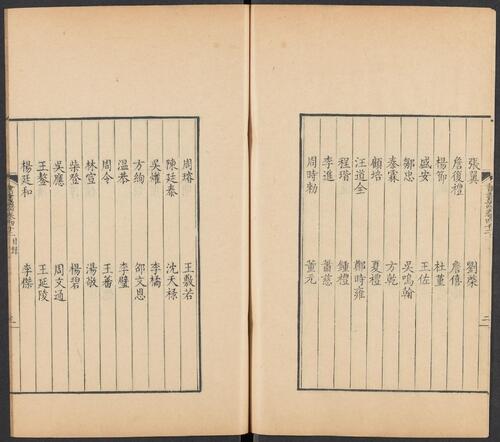 張翼 劉榮
詹復禮 詹僖
楊節 杜堇
盛安 王佐
鄒忠 吳鳴翰
秦霖 方乾
顧培 夏禮
汪道全 鄭時雍
程瑎 鍾禮
李進 蕭慈
周時勑 董元
周璿 王數若
陳廷泰 沈天祿
吳爟 李橘
方絢 邵文恩
溫恭 李璧
周令 王善
林宣 湯敬
柴登 楊碧
吳應 周文通
王鏊 王延陵
楊廷和 李傑